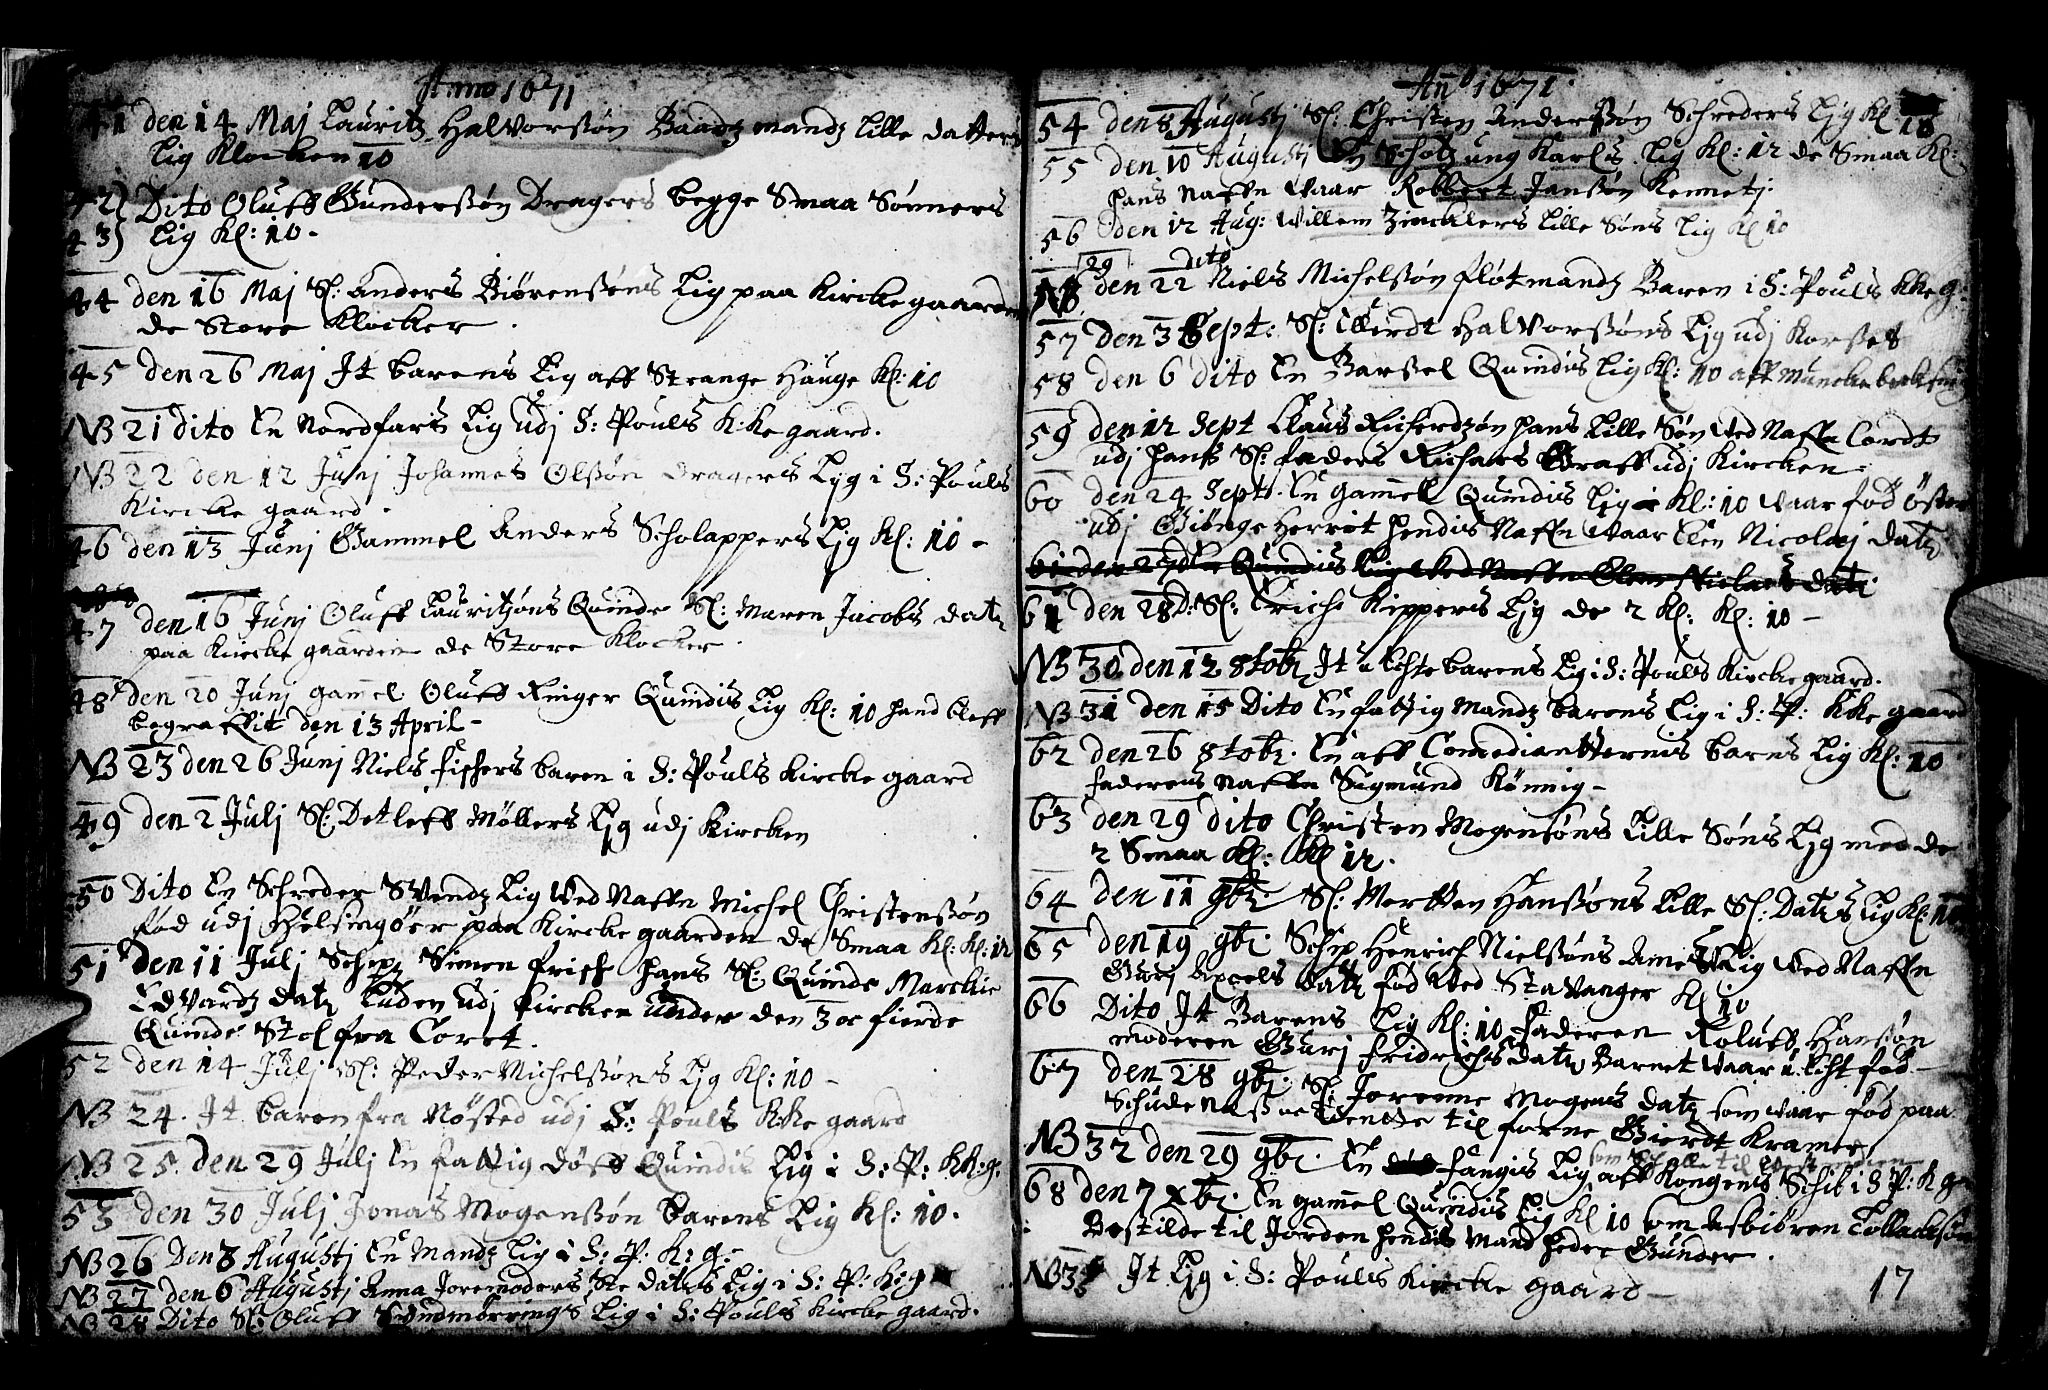 Anno 1671
41 den 14 Maj Lauritz Halvorssøn Baartz mandz Lille datters
Lig Klocken 10
42 Dito Oluff Gunderssøn Dragers begge Smaa Sønners
43 Lig Kl: 10 -
44 den 16 Maj Sl: Anders Biørenssøns Lig paa Kirckegaarden
de Store Klocker.
45 den 26 Maj It barens Lig aff Strange Hauge Kl: 10
NB 21 dito En Nordfars Lig udj S: Pouls K:Ke gaard.
NB 22 den 12 Junj Johannes Olssøn dragers Ljg i S: Pouls
Kircke gaard.
46 den 13 Junj Gammel Anders Scholappers Ljg Kl: 10 -
47 den 16 Junj Oluff Lauritzøns Quinde Sl: Maren Jacobs datz
paa Kircke gaarden de Store Klocker.
48 den 20 Junj gamel Oluff Ringer Quindis Lig Kl: 10 hand bleff
begraffvit den 13 April -
NB 23 den 26 Junj Niels fischers baren i S: Pouls Kircke gaard
49 den 2 Julj Sl: Detleff Møllers Ljg udj Kircken
50 Dito En Schreder Svendz Lig Ved Naffn Michel Christenssøn
fød udj Helsingøer paa Kircke gaarden de Smaa Kl: Kl: 12
51 den 11 Julj Schipz Simen frish hans Sl: Quinde Marckie
Edvardz datz Luden udj Kircken under den 3 oc fierde
Quinde Stol fra Coret.
52 den 14 Julj Sl: Peder Michelssøns Ljg Kl: 10 -
NB 24. It baren fra Nøsted udj S: Pouls K:Ke gaard
NB 25. den 29 Julj En fattig døff Quindis Lig i S: P: K:K:g.
53 den 30 Julj Jonas Mogenssøn barens Lig Kl: 10.
NB 26 Den 8 Augustj En Mandz Lig i S: P: K: g -
NB 27 den 6 Augustj Anna Joremoders Ste datters Lig i S: P: K: g
NB 28 Dito Sl: Oluff Sundmørrings Lig i S: Pouls Kircke gaard.
Ano 1671.
18
54 den 8 Augustj Sl: Christen Anderssøn Schreders Ljg Kl
55 den 10 Augustj En Schotz ung Karls Lig Kl: 12 de Smaa Kl:
hans Naffn Vaar Robbert Janssøn Kennetj.
56 den 12 Aug: Willem Zincklers Lille Søns Lig Kl 10
29 dito
NB den 22 Niels Michelssøn fløtmandz Baren i S: Pouls KKe g:
57 den 3 Sept: Sl: Ellerdt Halvorssøns Ljg udj Korsset
58 den 6 dito En Barssel Quindis Lig Kl: 10 aff
59 den 12 Sept Claus Richerdzøn hans Lille Søn Ved Naffn Cordt
udj hanss Sl: faders Richars Graff udj Kircken
60 den 24 Sept. En gamel Quindis Ljg Kl: 10 Vaar fød
udj Giønge Herrit hendis Naffn Vaar Elen Nicolaj datz
61 den 28 D: Sl: Erichs Kippers Ljg de 2 Kl: Kl: 10 -
NB 30 den 12 8tobz It u Echte barens Lig i S: Pouls Kircke gaard.
NB 31 den 15 Dito En fattig Mandz barens Lig i S: P: K:Ke gaard
62 den 26 8tobz. En aff Comedianternis barns Lig Kl: 10
faderens Naffn Sigmund Kønnig -
63 den 29 dito Christen Mogensøns Lille Søns Ljg med de
2 Smaa Kl: Kl 12.
64 den 11 9bz. Sl: Mortten Hanssøns Lille Sl: Datz Lig Kl: 10
65 den 19 9bz. Schip Henrich Nielssøns Lig Ved Naffn
Gurj datz fød Ved Stavanger Kl 10
66 Dito It Barens Lig Kl: 10 faderen Roluff Hanssøn
moderen Gurj fridrichs datz Barnet Vaar u. Echt fød -
67 den 28 9bz. Sl: Jorenne Mogens datz som Vaar fød paa
Schudenæss oc tiente til forne Gierdt Kramer
NB 32 den 29 9bz. En fangis Lig aff Kongens Schib i S P: K g
68 den 7 xbz. En gamel Quindis Lig Kl 10 som Asbiøren Tollachsøn
Bestilde til Jorden hendis Mand heder Gunder.
NB 33 It Ljg i S: Pouls Kircke gaard -
17